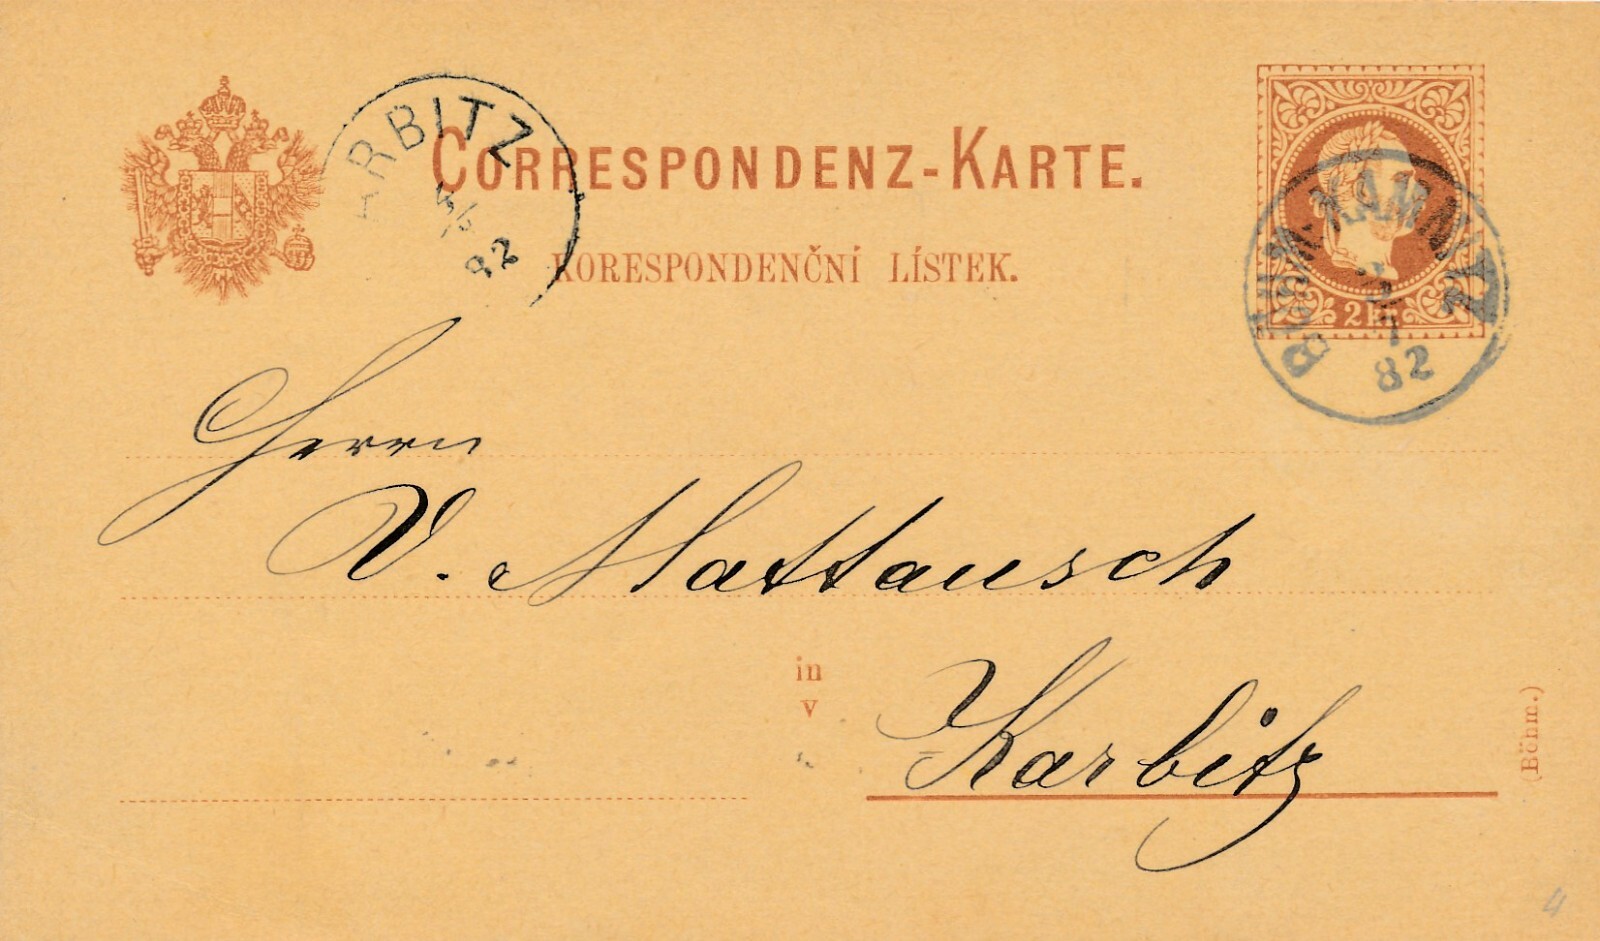 CORRESPONDENZ-KARTE.
KORESPONDENČNÍ LÍSTEK.
ARBITZ
82
2 kr.
BÖHM. KAMNITZ
3
7
82
Herrn
V. Mattausch
in
v
Karbitz
(Böhm.)
4